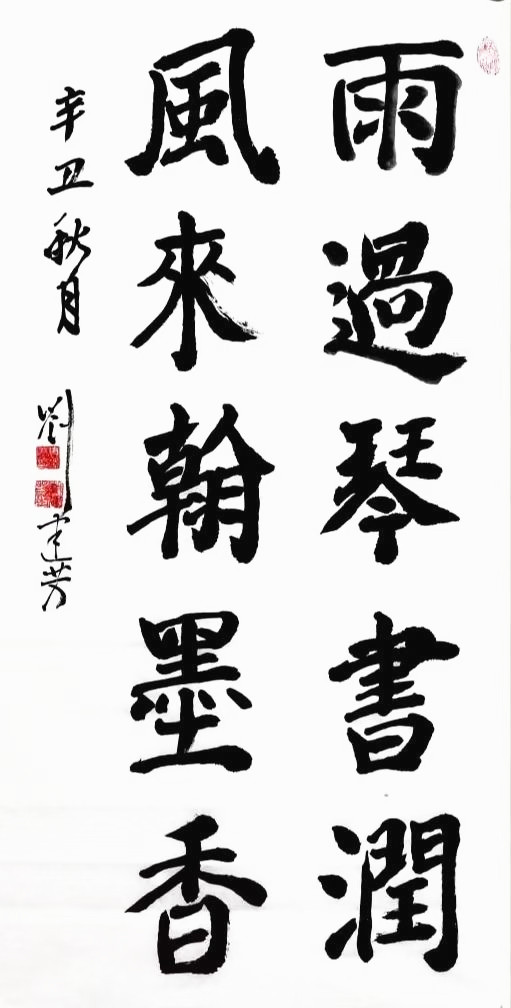 雨過琴書潤
風來翰墨香
辛丑秋月 劉建芳